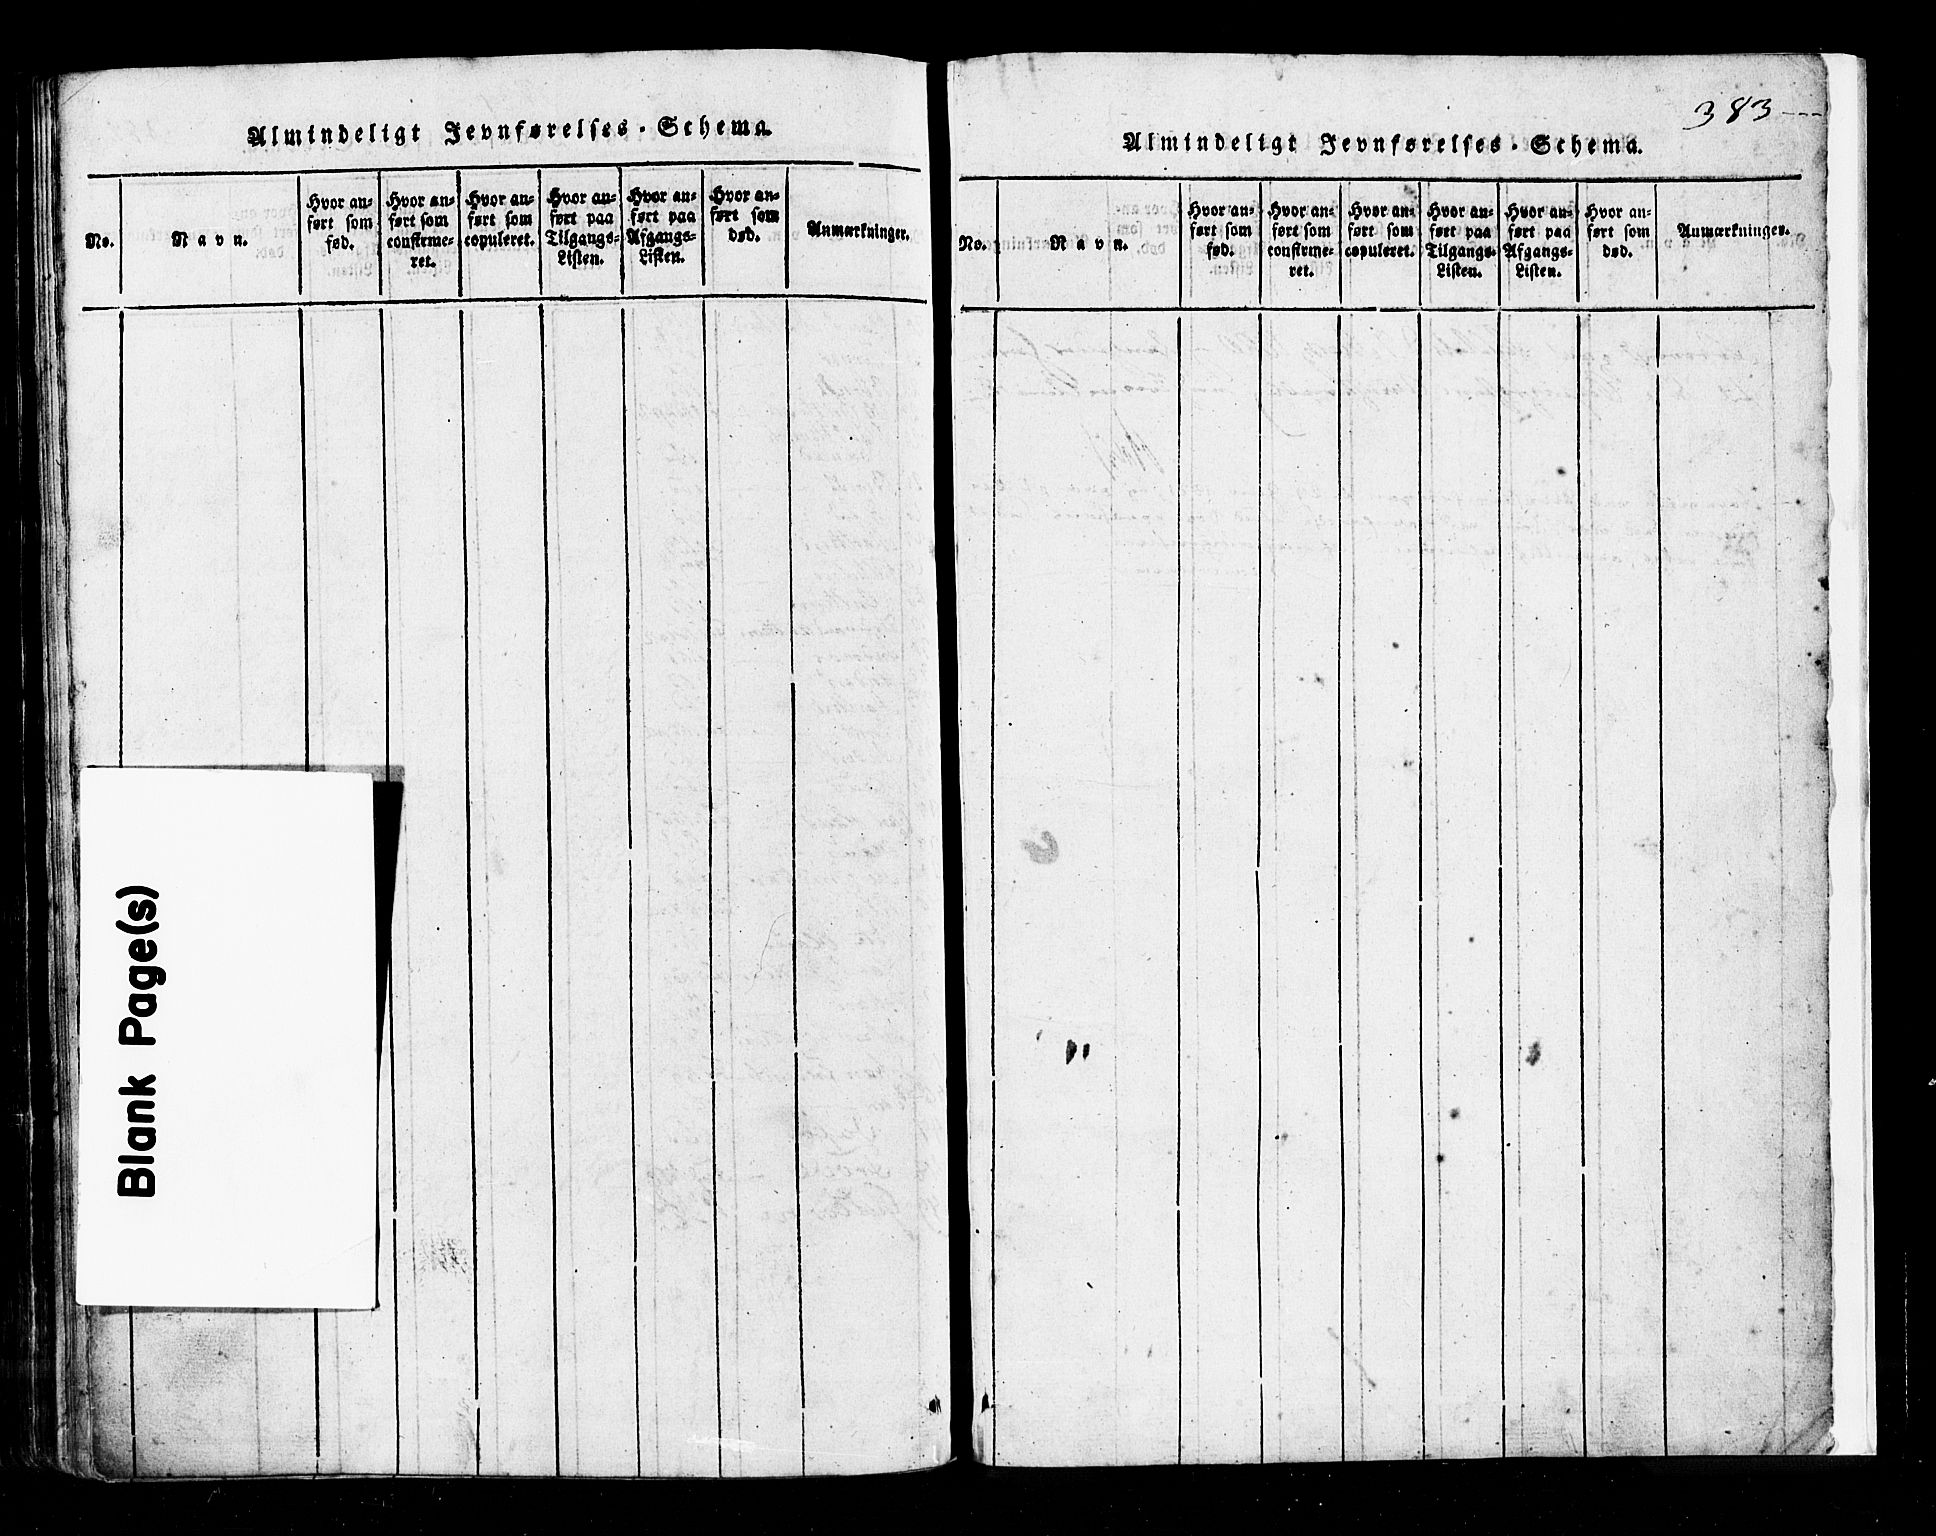 Almindeligt Jevnførelses-Schema.
No.
Navn.
Hvor an-
ført som
fød.
Hvor an-
ført som
confirme-
ret.
Hvor an-
ført som
copuleret.
Hvor an-
ført paa
Tilgangs-
Listen.
Hvor an-
ført paa
Afgangs-
Listen.
Hvor an-
ført som
død.
Anmærkninger.
Blank Page(s)
383
Almindeligt Jevnførelses-Schema.
No.
Navn.
Hvor an-
ført som
fød.
Hvor an-
ført som
confirme-
ret.
Hvor an-
ført som
copuleret.
Hvor an-
ført paa
Tilgangs-
Listen.
Hvor an-
ført paa
Afgangs-
Listen.
Hvor an-
ført som
død.
Anmærkninger.